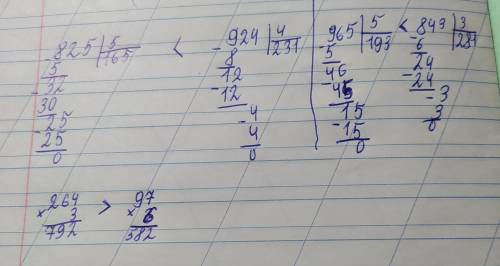 825 | 5 < 924 | 4 965 | 5 < 849 | 3
- 5 165 - 8 231 - 5 193 - 6 283
- 32 12 46 24
30 - 12 - 45 - 24
- 25 - 4 15 - 3
25 4 - 15 3
0 0 0 0
264 > 97
× 3 × 6
792 582